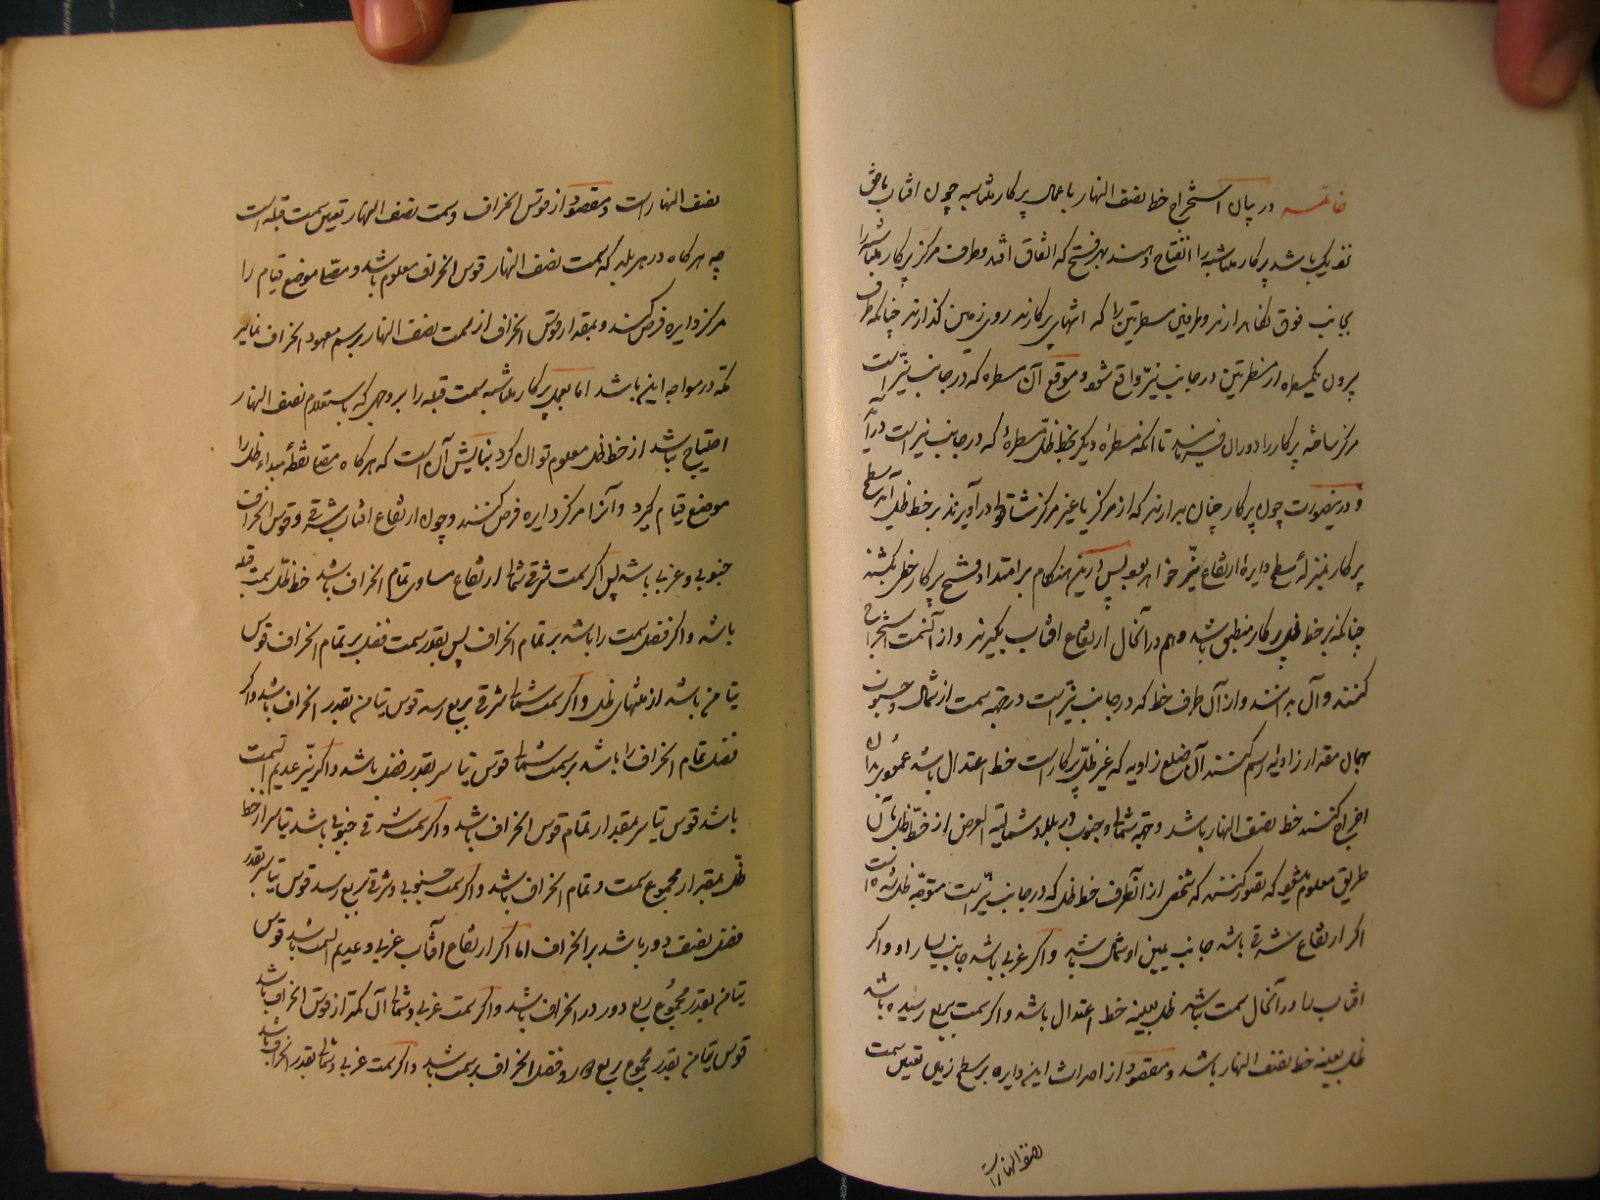 خاتمه در بیان استخراج خط نصف النهار باعمال پرکار متناسبه چون افتاب بافق
نزدیک باشد پرکار متناسبه را انفتاح دهند بهر فتح که اتفاق افتد و طرف مرکز پرکار متناسبه را
بجانب فوق نگاهدارند و طرفین مسطرتین را که انتهای پرکارند روی زمین گذارند چنانکه طرف
بیرون یکمسطره از مسطرتین در جانب نیّر واقع شود و موقع آن مسطره که در جانب نیّر است
مرکز ساخته پرکار را دوران میدهند تا آنکه مسطرهٔ دیگر بخط ظلّ مسطرهٔ که در جانب نیر است درآید
و درینصورت چون پرکار چنان بدارند که از مرکز یا غیر مرکز شاقولی درآویزند بر خط ظل آید سطح
پرکار بمنزلهٔ سطح دایرهٔ ارتفاع نیّر خواهد بود پس درین هنگام بر امتداد فتح پرکار خطی بکشند
چنانکه بر خط ظل پرکار منطبق باشد و هم در آنحال ارتفاع افتاب بگیرند و از آن سمت استخراج
کنند و آن بدانند و از آن طرف خط که در جانب نیّر است در جهة سمت از شمال و جنوب
بهمان مقدار زاویهٔ رسم کنند آن ضلع زاویه که غیر ظل پرکار است خط اعتدال باشد عمودی بر آن
اخراج کنند خط نصف النهار باشد و جهة شمال و جنوب در بلاد شمالیة العرض از خط ظل بآن
طریق معلوم میشود که تصور کنند که شخصی از آنطرف خط ظل که در جانب نیّر است متوجّه ظل است
اگر ارتفاع شرقی باشد جانب یمین او شمال باشد و اگر غربی باشد جانب یسار او و اگر
افتاب را در آنحال سمت نباشد ظل بعینه خط اعتدال باشد و اگر سمت بربع رسیده باشد
ظل بعینه خط نصف النهار باشد و مقصود از احداث این دایره بر سطح زمین تعیین سمت
نصف النهار است
نصف النهار است و مقصود از قوس انحراف و سمت نصف النهار تعیین سمت قبله است
چه هرگاه در هر بلد که سمت نصف النهار قوس انحراف معلوم باشد و مصلی موضع قیام را
مرکز دایره فرض کنند و بمقدار قوس انحراف از سمت نصف النهار برسم معهود انحراف نماید
مکّه در مواجه این باشد اما بعمل پرکار متناسبه سمت قبله را بروجهی که باستعلام نصف النهار
احتیاج نباشد از خط ظل معلوم توان کرد بنایش آن است که هرگاه مصلی نقطهٔ مبداء ظل را
موضع قیام گیرد و آنرا مرکز دایره فرض کنند و چون ارتفاع افتاب شرقی و قوس انحراف
جنوبی و غربی باشد پس اگر سمت شرقی شمالی ارتفاع مساوی تمام انحراف باشد خط ظلّ سمت قبله
باشد و اگر فضل سمت را باشد بر تمام انحراف پس بقدر سمت فضل بر تمام انحراف قوس
تیامن باشد از منتهای ظل و اگر سمت شمالی شرقی بربع رسد قوس تیامن بقدر انحراف باشد و اگر
فضل تمام انحراف را باشد بر سمت شمالی قوس تیاسر بقدر فضل باشد و اگر نیّر عدیم السمت
باشد قوس تیاسر بمقدار تمام قوس انحراف باشد و اگر سمت شرقی جنوبی باشد تیاسر از خط
ظلّ بمقدار مجموع سمت و تمام انحراف باشد و اگر سمت جنوبی و شرقی بربع رسد قوس تیاسر بقدر
فضل نصف دور باشد بر انحراف اما اگر ارتفاع آفتاب غربی و عدیم السمت باشد قوس
تیامن بقدر مجموع ربع دور در انحراف باشد و اگر سمت غربی و شمالی آن کمتر از قوس انحراف باشد
قوس تیامن بقدر مجموع ربع دور و فضل انحراف بر سمت باشد و اگر سمت غربی و شمالی بقدر انحراف باشد